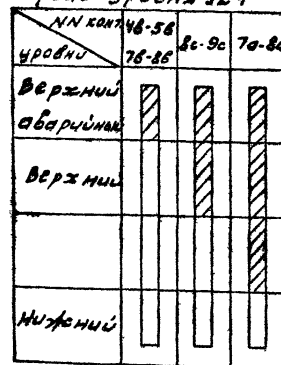 NN конт.
уровни
4в-5в
7в-8в
8с-9с
7а-8а
Верхний
аварийный
Верхний
Нижний